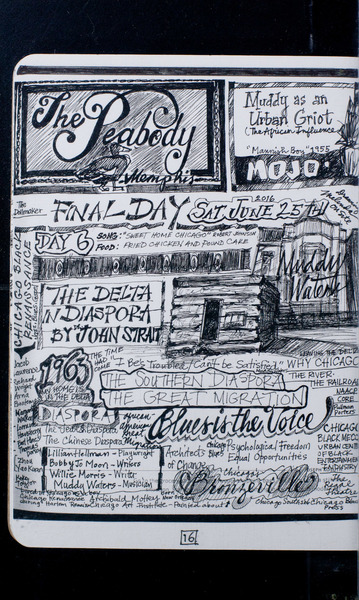 The Peabody
Memphis
Muddy as an
Urban Griot
(The African Influence
"Mannish Boy" 1955
MOJO
The
Dollmaker
FINAL DAY
2016
SAT JUNE 25TH
DAY 6
SONG: "SWEET HOME CHICAGO" ROBERT JOHNSON
FOOD: FRIED CHICKEN AND POUND CAKE
CHICAGO BLACK
RENAISSANCE
THE DELTA
IN DIASPORA
BY JOHN STRAIT
Muddy
Waters
1963
THE TIME
"I Be's Troubled / Can't be Satisfied"
LEAVING THE DELTA
WHY CHICAGO
THE RIVER
THE RAILROAD
NAACP
CORE
Pullman
Porters
HOME IS
IN THE DELTA
THE SOUTHERN DIASPORA
THE GREAT MIGRATION
DIASPORA
The Jewish Diaspora
The Chinese Diaspora
Blues is the Voice
Lillian Hellman - Playwright
Bobby Jo Moon - Writers
Willie Morris - Writer
Muddy Waters - Musician
Architects
of Change
Psychological Freedom
Equal Opportunities
Chicago's
Bronzeville
CHICAGO
BLACK MECCA
URBAN CENTER
OF BLACK
ENTERTAINMENT
INDUSTRY
The
Regal
Theatre
Jacob
Lawrence
Richard
Wright
Arna
Bontemps
Chicago Renaissance Archibald Motley
Harlem Renaissance
Chicago Art Institute - Painted about
Chicago Southside
Press
16